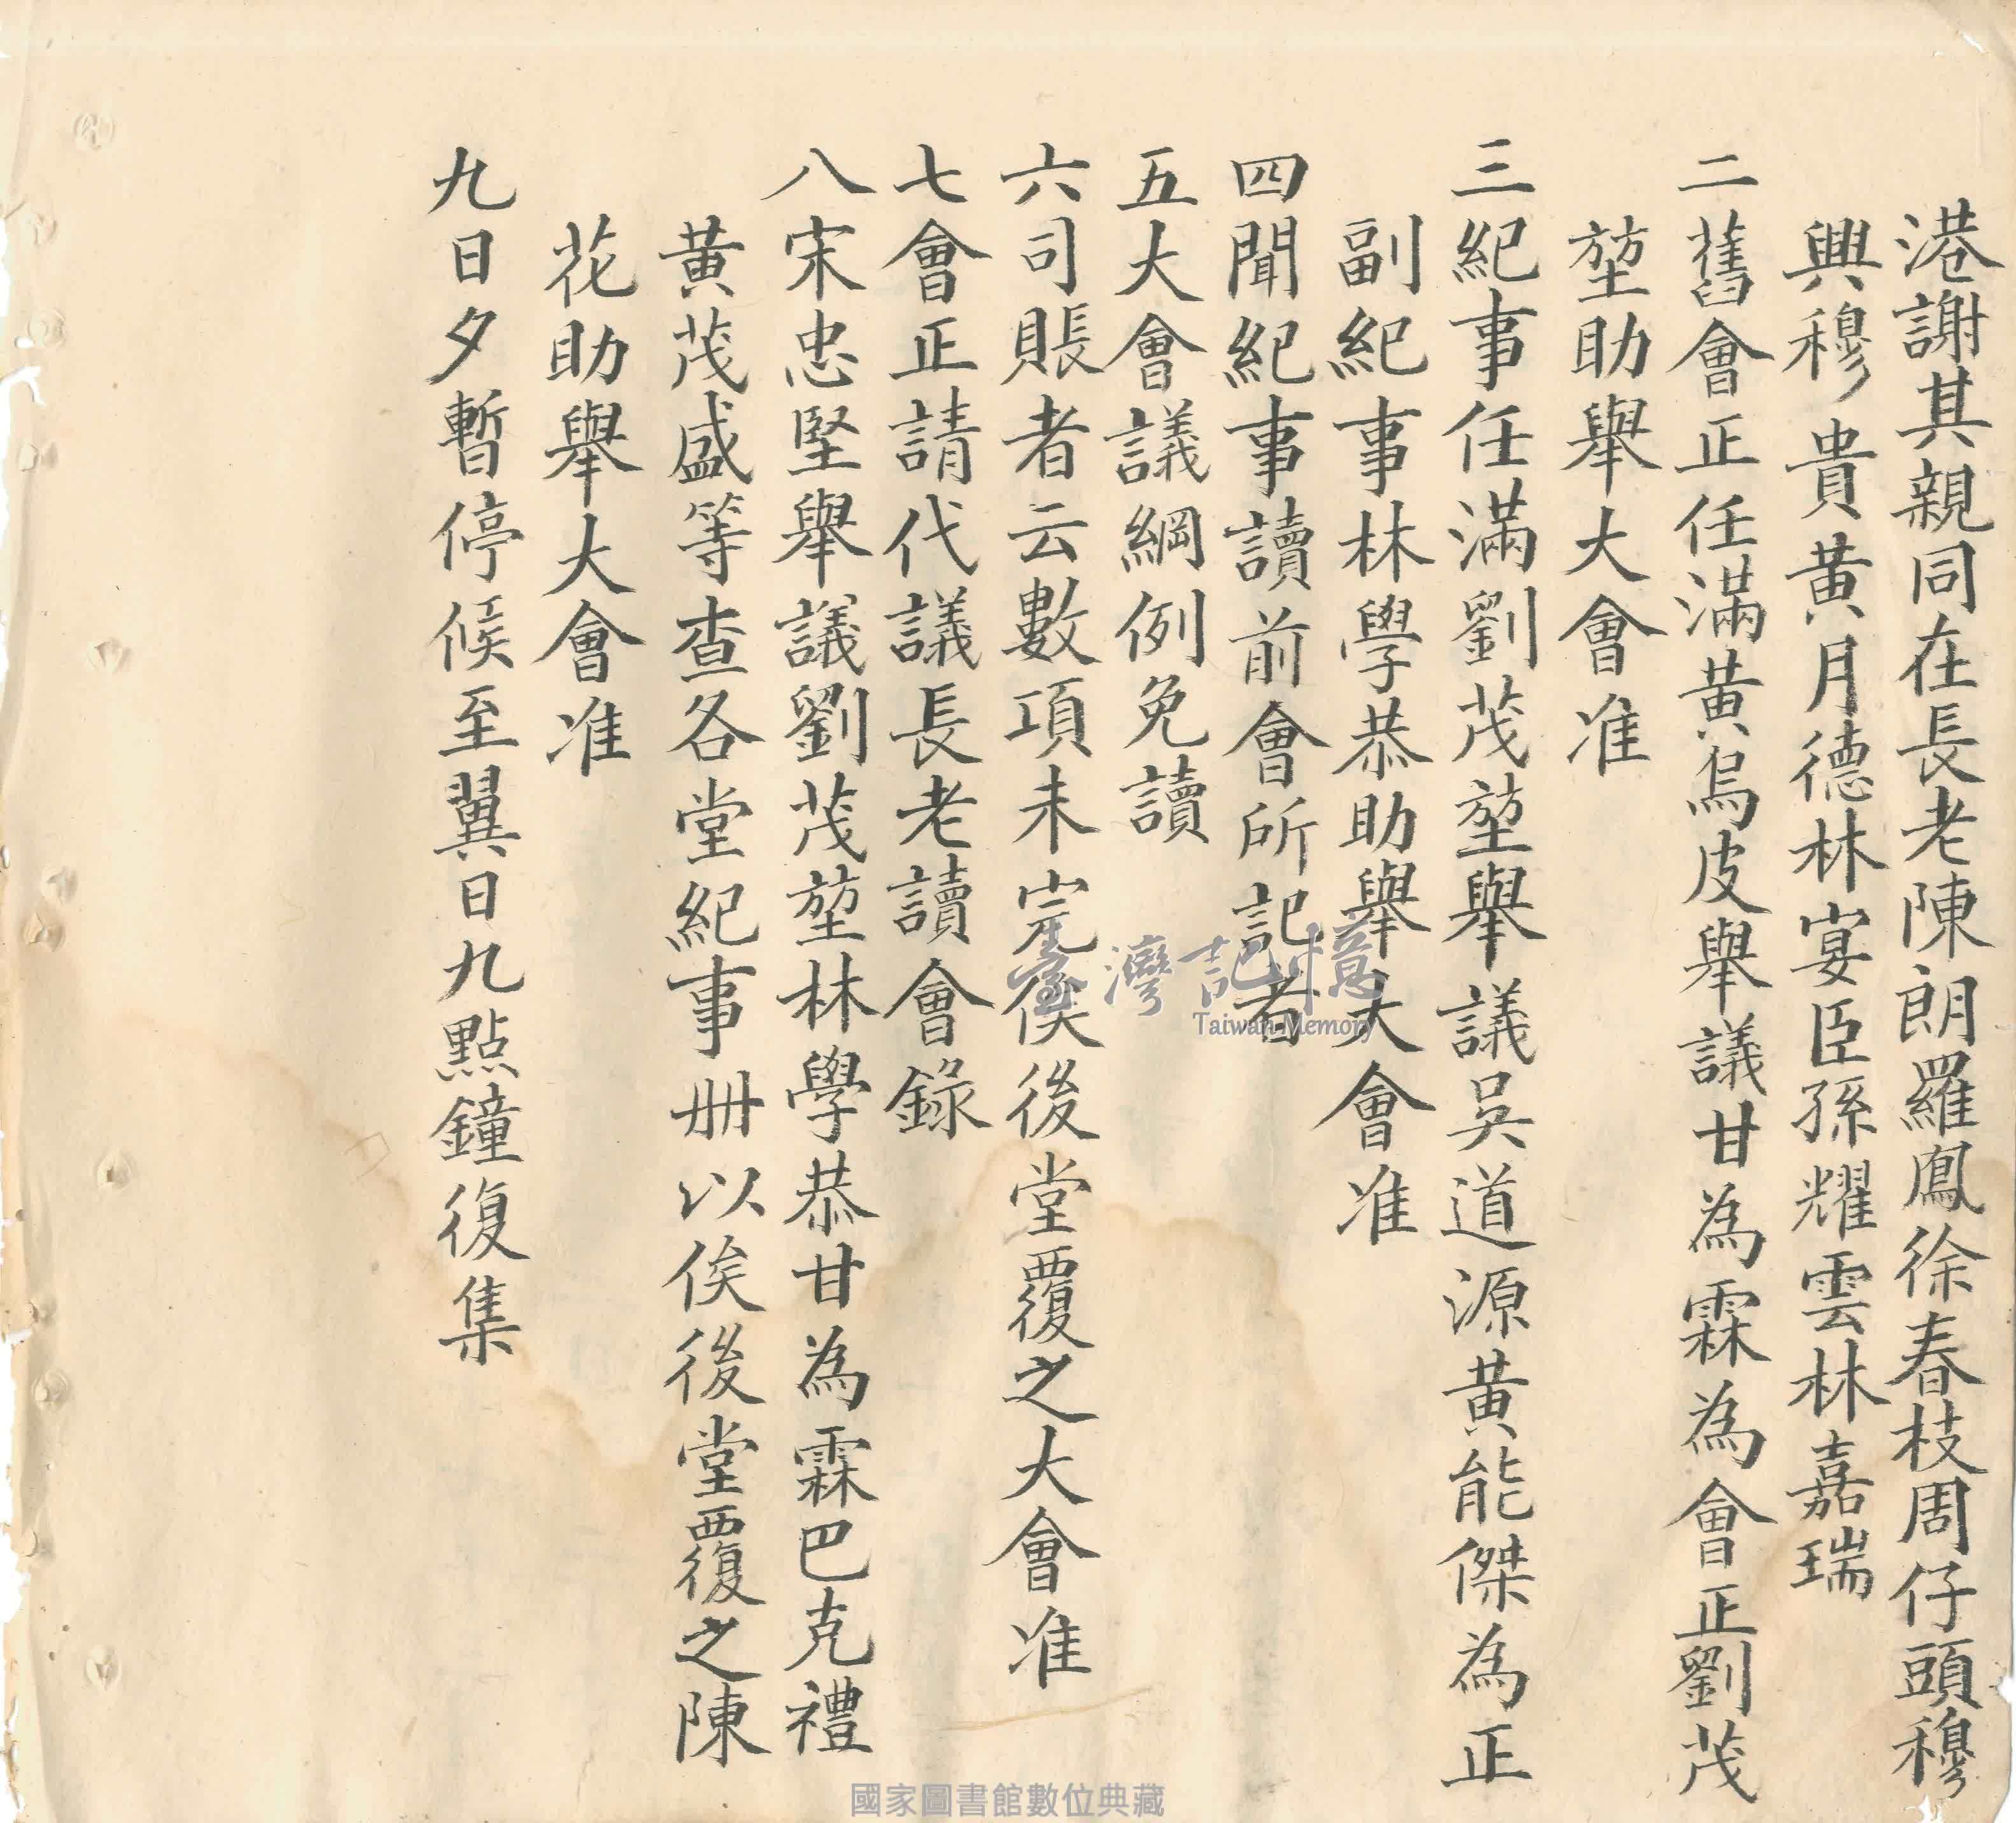 港謝其親同在長老陳朗羅鳳徐春枝周仔頭穆
興穆貴黃月德林宴臣孫耀雲林嘉瑞
二舊會正任滿黃烏皮舉議甘為霖為會正劉茂
堃助舉大會准
三紀事任滿劉茂堃舉議吳道源黃能傑為正
副紀事林學恭助舉大會准
四聞紀事讀前會所記者
五大會議綱例免讀
六司賬者云數項未完俟後堂覆之大會准
七會正請代議長老讀會錄
八宋忠堅舉議劉茂堃林學恭甘為霖巴克禮
黃茂盛等查各堂紀事冊以俟後堂覆之陳
花助舉大會准
九日夕暫停候至翼日九點鐘復集
臺灣記憶
Taiwan Memory
國家圖書館數位典藏